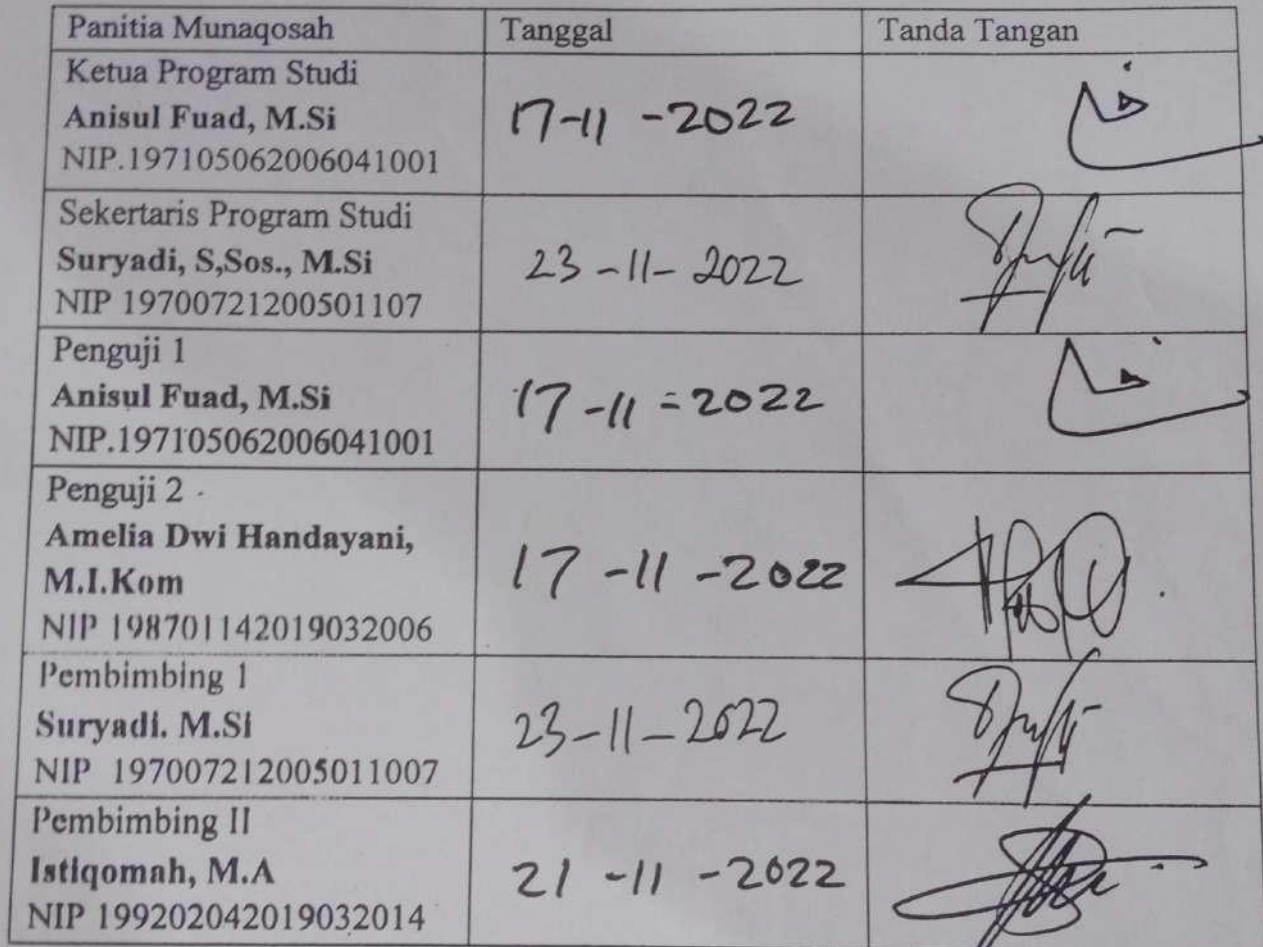 Panitia Munaqosah Tanggal Tanda Tangan
Ketua Program Studi
Anisul Fuad, M.Si
NIP.197105062006041001
17-11-2022
Sekertaris Program Studi
Suryadi, S,Sos., M.Si
NIP 19700721200501107
23-11-2022
Penguji 1
Anisul Fuad, M.Si
NIP.197105062006041001
17-11-2022
Penguji 2
Amelia Dwi Handayani,
M.I.Kom
NIP 198701142019032006
17-11-2022
Pembimbing 1
Suryadi. M.Si
NIP 197007212005011007
23-11-2022
Pembimbing II
Istiqomah, M.A
NIP 199202042019032014
21-11-2022